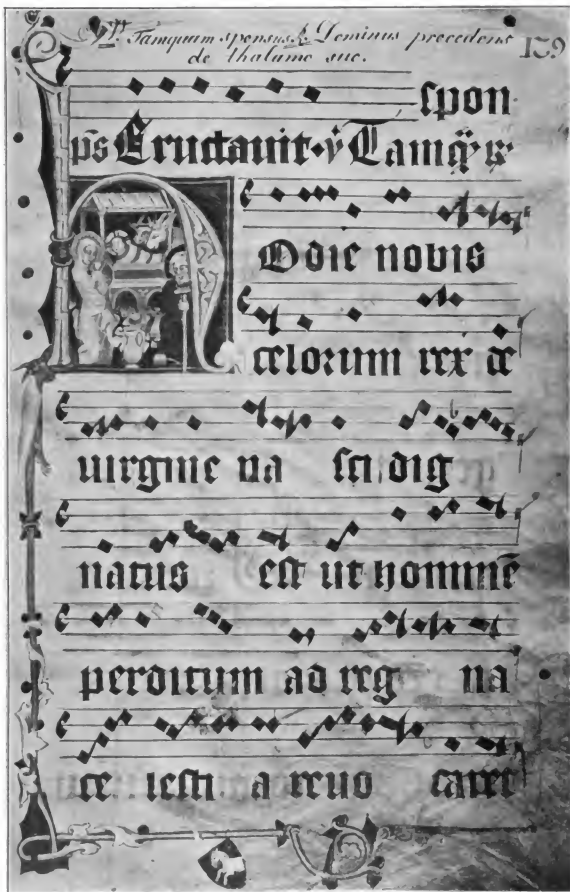 ℣. Tamquam sponsus ℟. Dominus precedens 139
de thalamo suo.
spon
p̄s Eructauit ℣ Tamq̄ ℟
Hodie nobis
celorum rex de
uirgine na sci dig
natus est ut hominē
perditum ad reg na
ce lesti a reuo caret